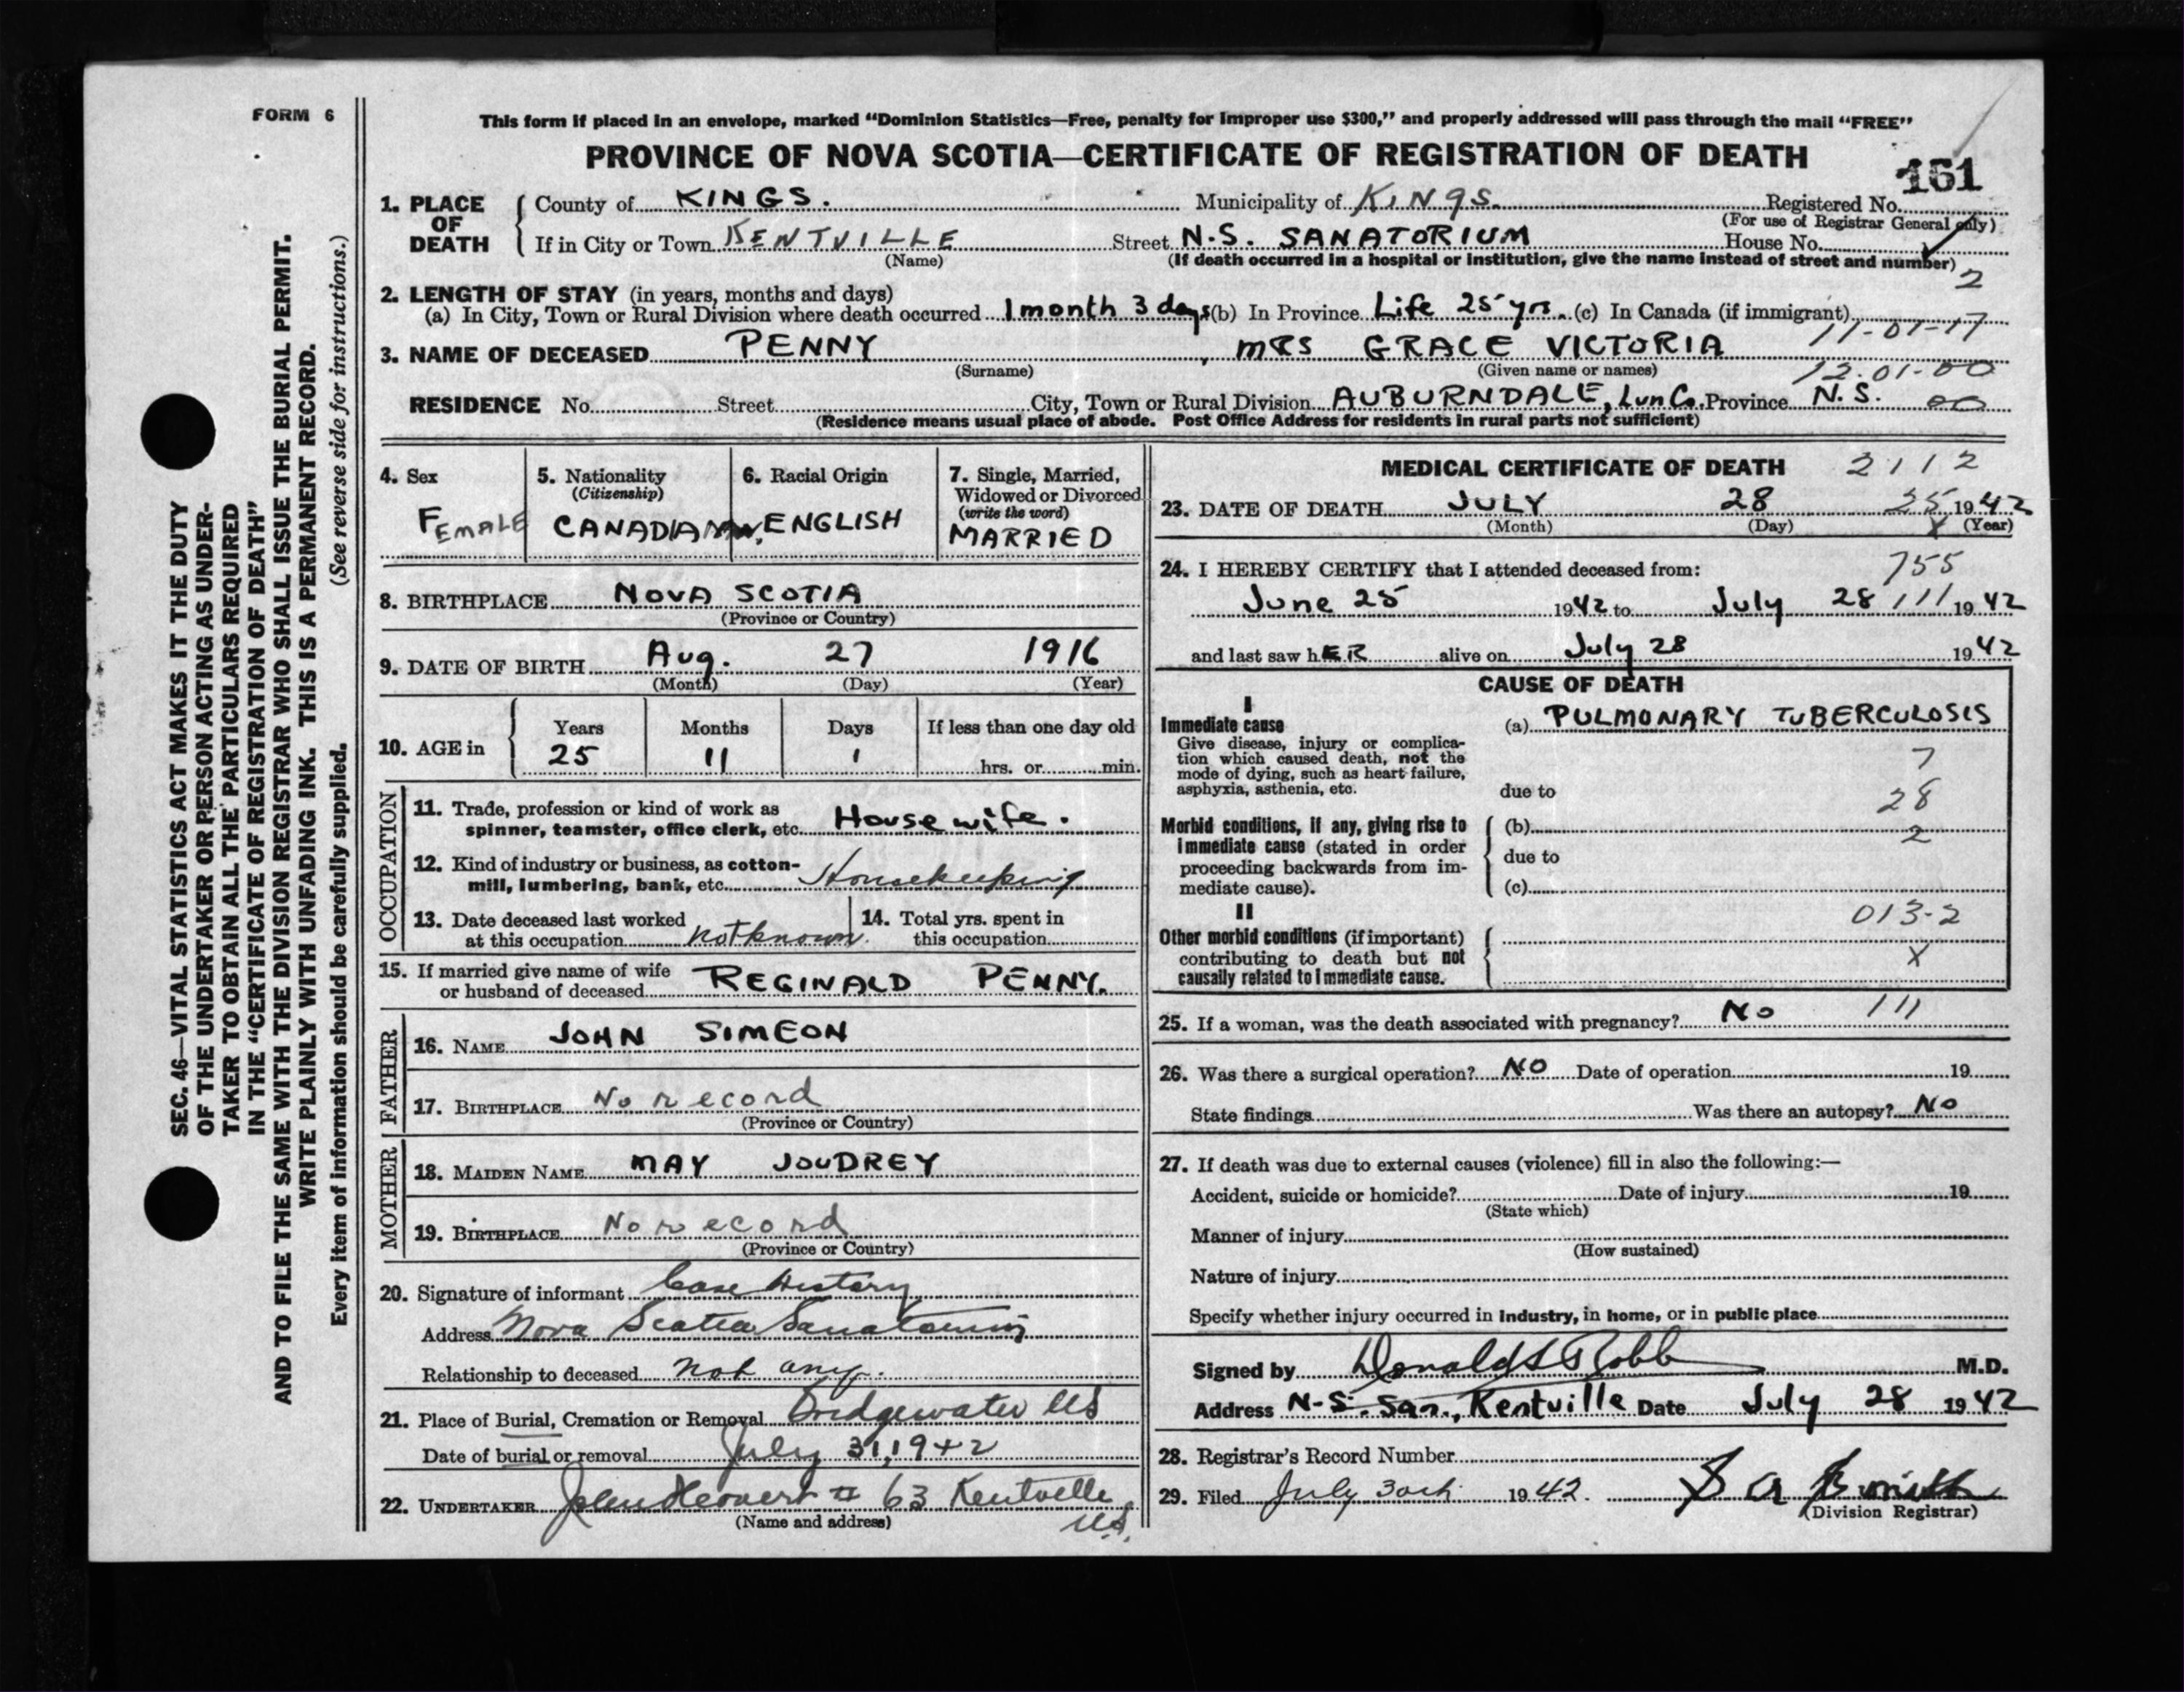 FORM 6
This form if placed in an envelope, marked “Dominion Statistics—Free, penalty for improper use $300,” and properly addressed will pass through the mail “FREE”
PROVINCE OF NOVA SCOTIA—CERTIFICATE OF REGISTRATION OF DEATH
161
1. PLACE OF DEATH
County of KINGS. Municipality of KINGS. Registered No.
(For use of Registrar General only)
If in City or Town KENTVILLE Street N.S. SANATORIUM House No.
(Name) (If death occurred in a hospital or institution, give the name instead of street and number)
2
2. LENGTH OF STAY (in years, months and days)
(a) In City, Town or Rural Division where death occurred 1 month 3 days (b) In Province Life 25 yrs. (c) In Canada (if immigrant)
11-01-17
3. NAME OF DECEASED PENNY, MRS GRACE VICTORIA
(Surname) (Given name or names)
12-01-00
RESIDENCE No. Street City, Town or Rural Division AUBURNDALE, Lun Co. Province N.S. 00
(Residence means usual place of abode. Post Office Address for residents in rural parts not sufficient)
4. Sex
FEMALE
5. Nationality
(Citizenship)
CANADIAN
6. Racial Origin
ENGLISH
7. Single, Married,
Widowed or Divorced
(write the word)
MARRIED
8. BIRTHPLACE NOVA SCOTIA
(Province or Country)
9. DATE OF BIRTH Aug. 27 1916
(Month) (Day) (Year)
10. AGE in
Years Months Days If less than one day old
25 11 1 hrs. or min.
OCCUPATION
11. Trade, profession or kind of work as
spinner, teamster, office clerk, etc. Housewife.
12. Kind of industry or business, as cotton-
mill, lumbering, bank, etc. Housekeeping
13. Date deceased last worked
at this occupation not known.
14. Total yrs. spent in
this occupation
15. If married give name of wife
or husband of deceased REGINALD PENNY.
FATHER
16. NAME JOHN SIMEON
17. BIRTHPLACE No record
(Province or Country)
MOTHER
18. MAIDEN NAME MAY JOUDREY
19. BIRTHPLACE No record
(Province or Country)
20. Signature of informant Case History
Address Nova Scotia Sanatorium
Relationship to deceased not any.
21. Place of Burial, Cremation or Removal Bridgewater NS
Date of burial or removal July 31, 1942
22. UNDERTAKER # 63 Kentville
(Name and address) NS.
MEDICAL CERTIFICATE OF DEATH 2112
23. DATE OF DEATH JULY 28 25 1942
(Month) (Day) X (Year)
24. I HEREBY CERTIFY that I attended deceased from: 755
June 25 1942 to July 28 111 1942
and last saw hER alive on July 28 1942
CAUSE OF DEATH
I
Immediate cause
Give disease, injury or complica-
tion which caused death, not the
mode of dying, such as heart failure,
asphyxia, asthenia, etc.
(a) PULMONARY TUBERCULOSIS
7
due to
28
Morbid conditions, if any, giving rise to
immediate cause (stated in order
proceeding backwards from im-
mediate cause).
(b)
2
due to
(c)
II
Other morbid conditions (if important)
contributing to death but not
causally related to immediate cause.
013-2
X
25. If a woman, was the death associated with pregnancy? No 111
26. Was there a surgical operation? NO Date of operation 19
State findings Was there an autopsy? No
27. If death was due to external causes (violence) fill in also the following:—
Accident, suicide or homicide? Date of injury 19
(State which)
Manner of injury
(How sustained)
Nature of injury
Specify whether injury occurred in industry, in home, or in public place
Signed by Donald S Robb M.D.
Address N.S. San., Kentville Date July 28 1942
28. Registrar's Record Number
29. Filed July 30th 1942.
(Division Registrar)
SEC. 46—VITAL STATISTICS ACT MAKES IT THE DUTY
OF THE UNDERTAKER OR PERSON ACTING AS UNDER-
TAKER TO OBTAIN ALL THE PARTICULARS REQUIRED
IN THE “CERTIFICATE OF REGISTRATION OF DEATH”
AND TO FILE THE SAME WITH THE DIVISION REGISTRAR WHO SHALL ISSUE THE BURIAL PERMIT.
WRITE PLAINLY WITH UNFADING INK. THIS IS A PERMANENT RECORD.
Every item of information should be carefully supplied. (See reverse side for instructions.)